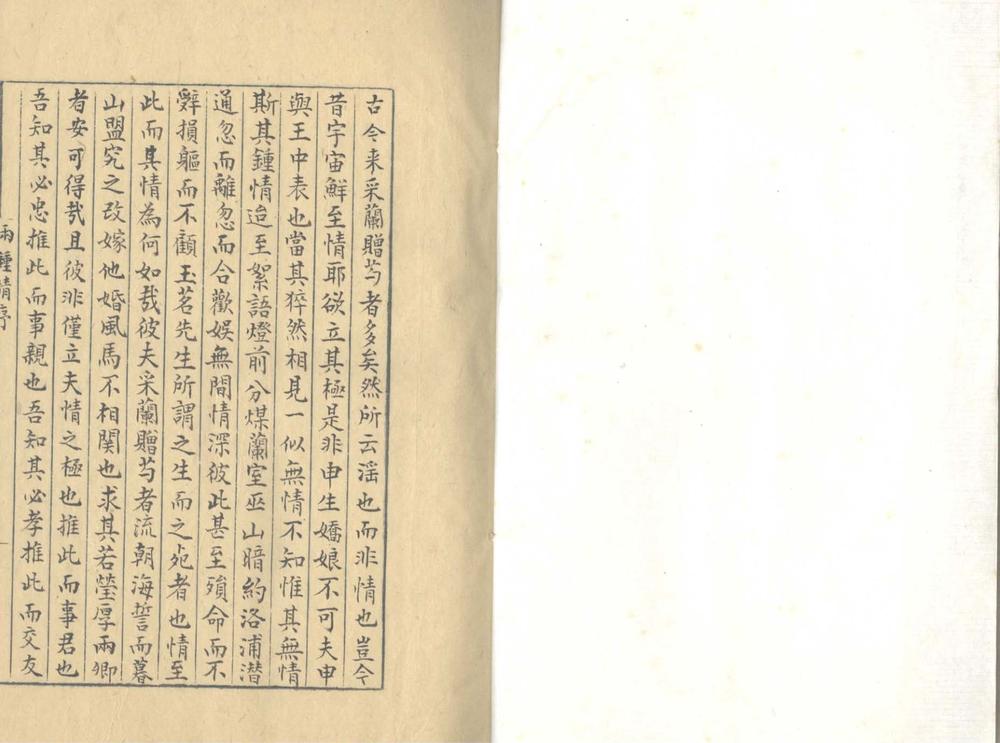 古今来采蘭贈芍者多矣然所云滛也而非情也豈今
昔宇宙鮮至情耶欲立其極是非申生嬌娘不可夫申
與王中表也當其猝然相見一似無情不知惟其無情
斯其鍾情迨至絮語燈前分煤蘭室巫山暗約洛浦潜
通忽而離忽而合歡娱無間情深彼此甚至殞命而不
辭損軀而不顧玉茗先生所謂之生而之死者也情至
此而其情為何如哉彼夫采蘭贈芍者流朝海誓而暮
山盟究之改嫁他婚風馬不相関也求其若瑩厚兩卿
者安可得哉且彼非僅立夫情之極也推此而事君也
吾知其必忠推此而事親也吾知其必孝推此而交友
兩鍾情序